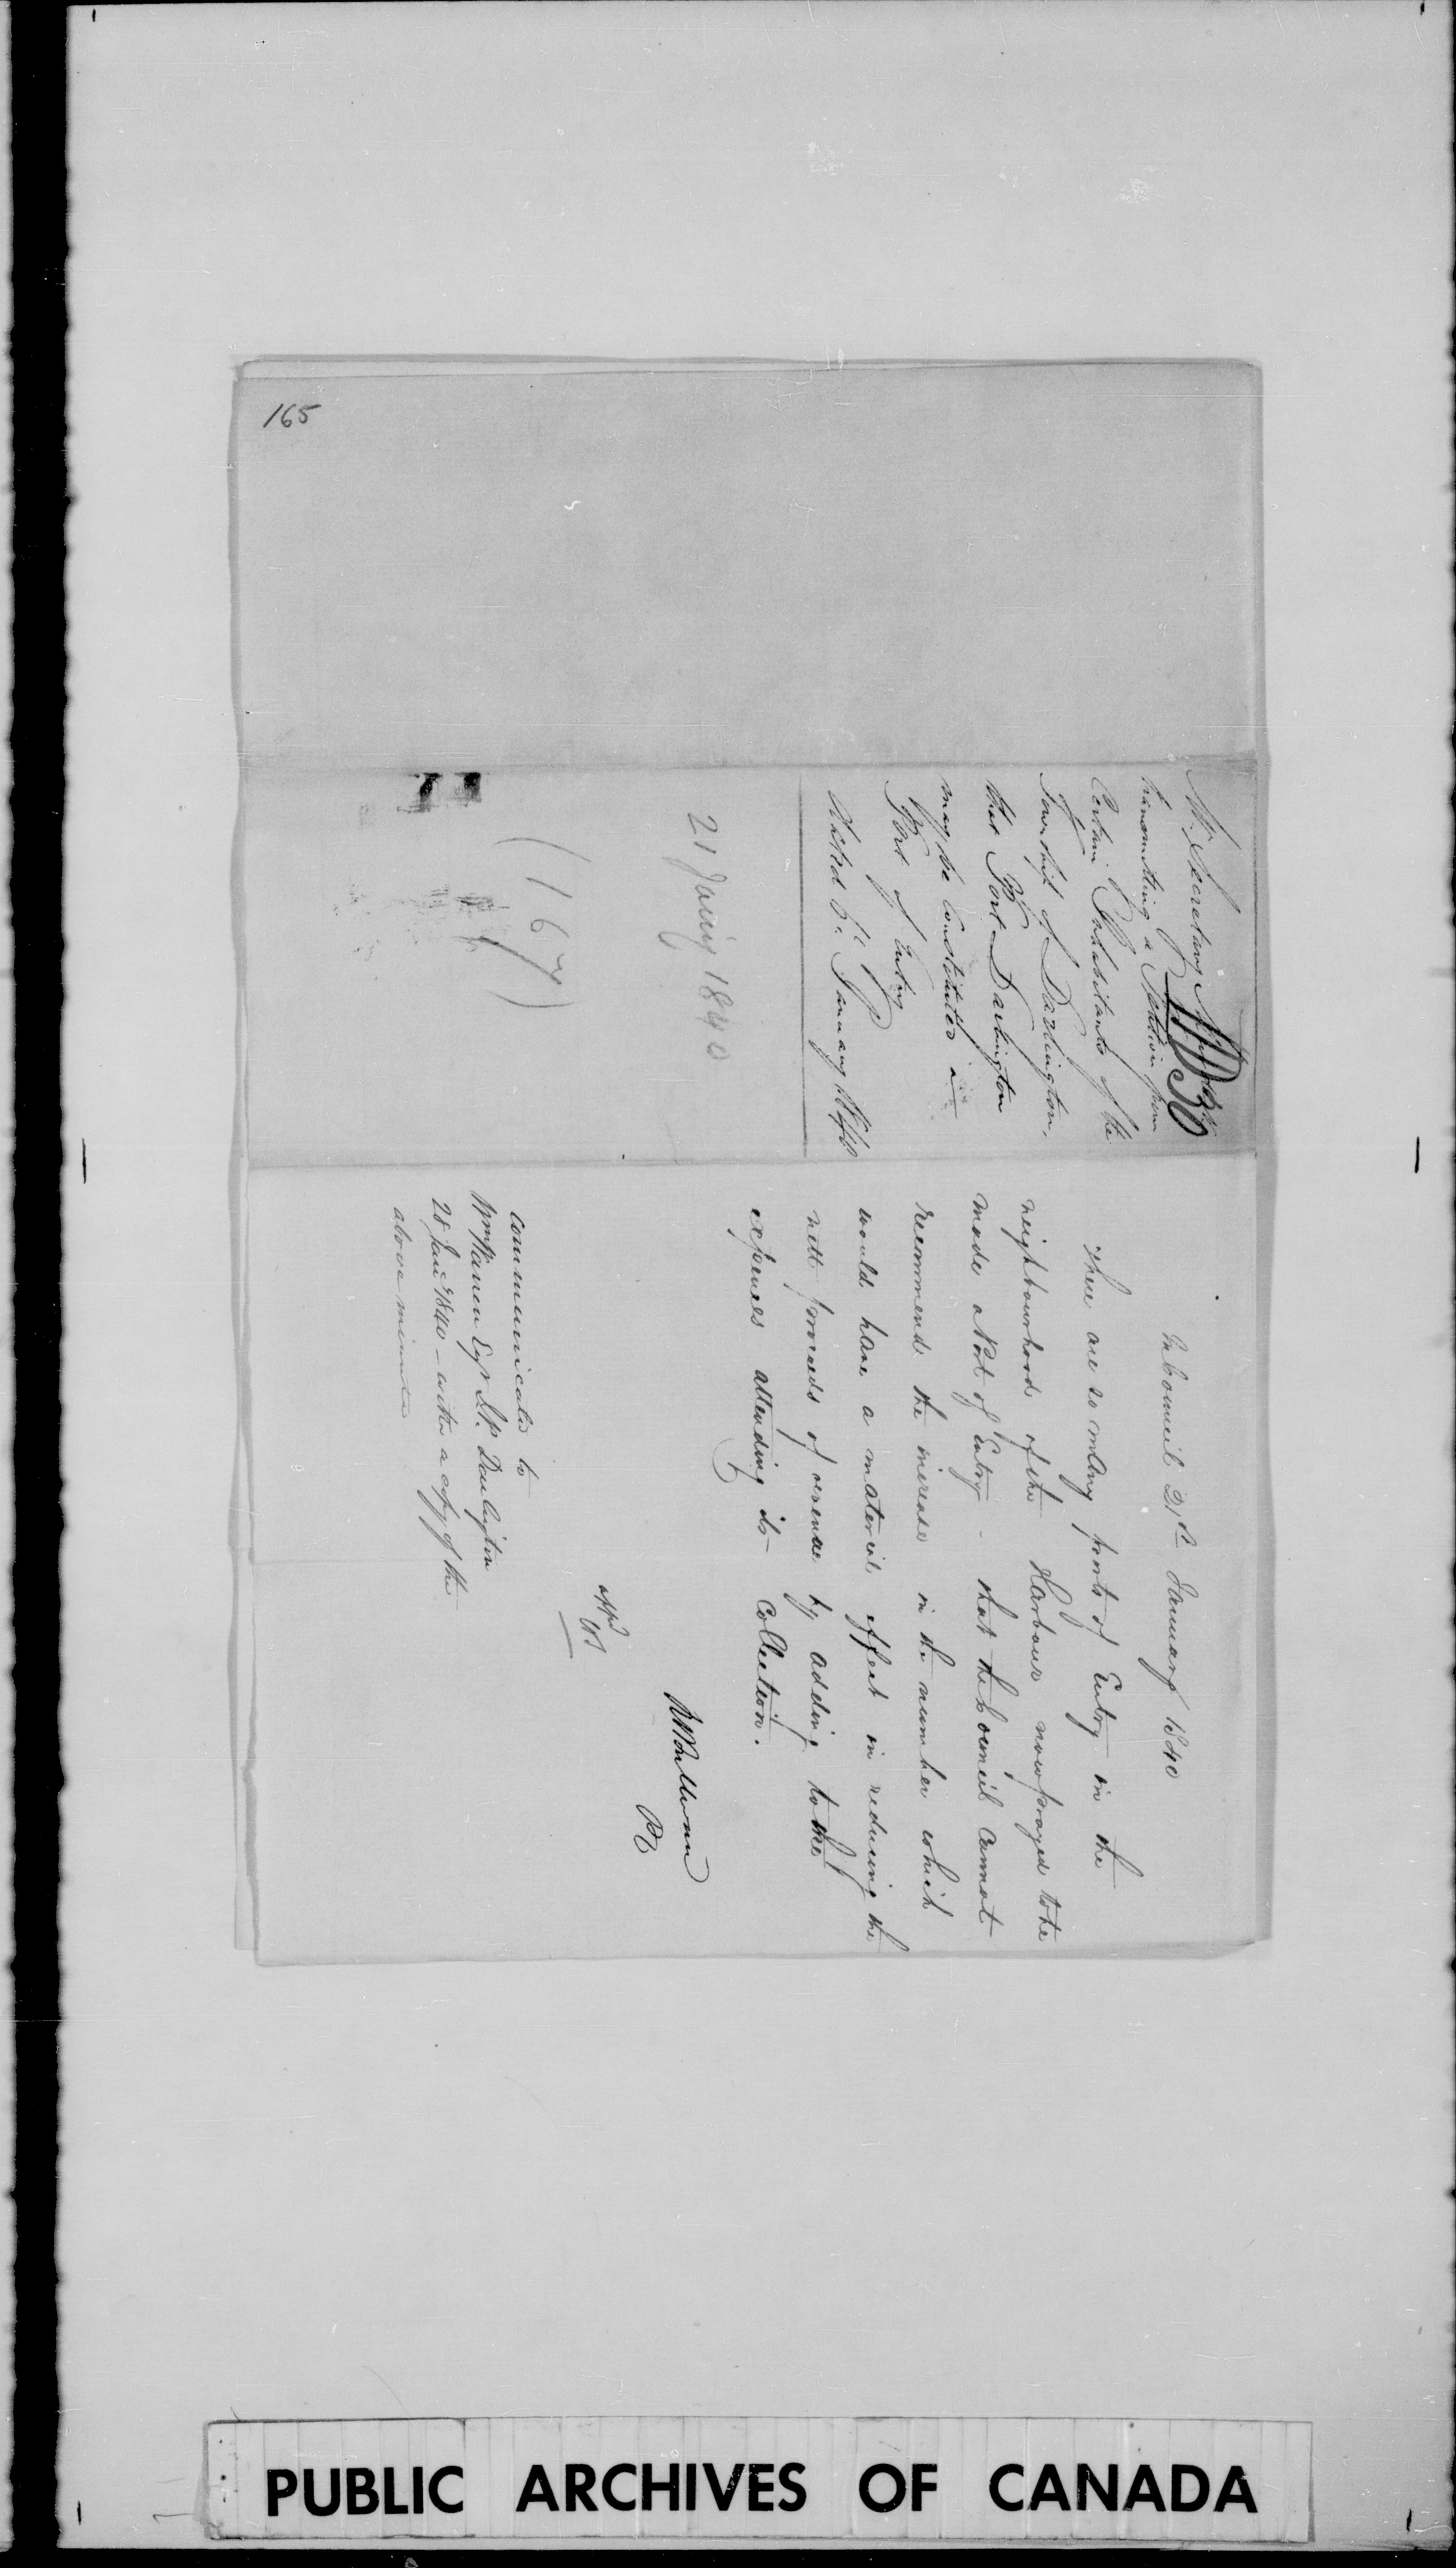 165
Mr. Secretary
transmitting a Petition from
Certain Inhabitants of the
Township of Darlington,
that Port Darlington
may be Constituted a
Port of Entry
Dated January 1840
21 Jany 1840
(167)
In Council 21st January 1840
There are so many ports of Entry in the
neighbourhood of the Harbour now prayed to be
made a Port of Entry - that the Council cannot
recommend the increase in the number which
would have a material effect in reducing the
nett proceeds of revenue by adding to the
expenses attending its collection.
RBSullivan
PC
appd
communicated to
Wm Warren Esqr Darlington
28 Jany 1840 - with a copy of the
above minute
PUBLIC ARCHIVES OF CANADA